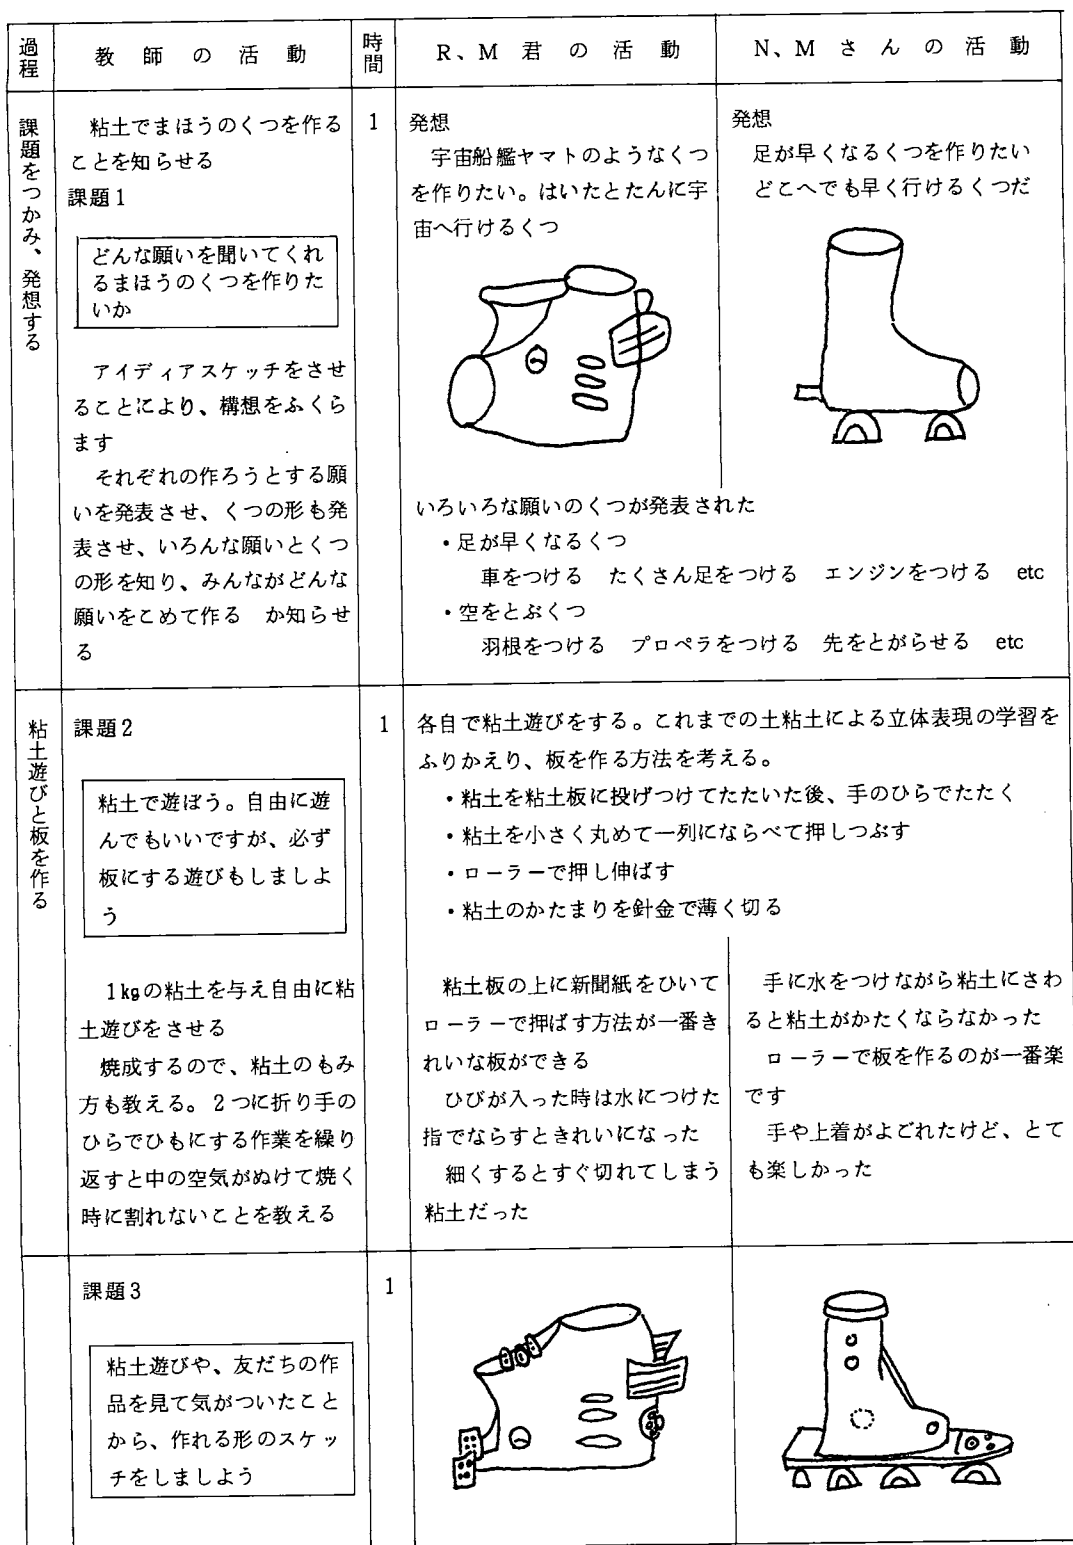 過程
教師の活動
時間
R、M君の活動
N、Mさんの活動
課題をつかみ、発想する
粘土でまほうのくつを作る
ことを知らせる
課題1
どんな願いを聞いてくれ
るまほうのくつを作りた
いか
アイディアスケッチをさせ
ることにより、構想をふくら
ます
それぞれの作ろうとする願
いを発表させ、くつの形も発
表させ、いろんな願いとくつ
の形を知り、みんながどんな
願いをこめて作る　か知らせ
る
1
発想
宇宙船艦ヤマトのようなくつ
を作りたい。はいたとたんに宇
宙へ行けるくつ
発想
足が早くなるくつを作りたい
どこへでも早く行けるくつだ
いろいろな願いのくつが発表された
・足が早くなるくつ
車をつける　たくさん足をつける　エンジンをつける　etc
・空をとぶくつ
羽根をつける　プロペラをつける　先をとがらせる　etc
粘土遊びと板を作る
課題2
粘土で遊ぼう。自由に遊
んでもいいですが、必ず
板にする遊びもしましよ
う
1kgの粘土を与え自由に粘
土遊びをさせる
焼成するので、粘土のもみ
方も教える。2つに折り手の
ひらでひもにする作業を繰り
返すと中の空気がぬけて焼く
時に割れないことを教える
1
各自で粘土遊びをする。これまでの土粘土による立体表現の学習を
ふりかえり、板を作る方法を考える。
・粘土を粘土板に投げつけてたたいた後、手のひらでたたく
・粘土を小さく丸めて一列にならべて押しつぶす
・ローラーで押し伸ばす
・粘土のかたまりを針金で薄く切る
粘土板の上に新聞紙をひいて
ローラーで押ばす方法が一番き
れいな板ができる
ひびが入った時は水につけた
指でならすときれいになった
細くするとすぐ切れてしまう
粘土だった
手に水をつけながら粘土にさわ
ると粘土がかたくならなかった
ローラーで板を作るのが一番楽
です
手や上着がよごれたけど、とて
も楽しかった
課題3
粘土遊びや、友だちの作
品を見て気がついたこと
から、作れる形のスケッ
チをしましよう
1